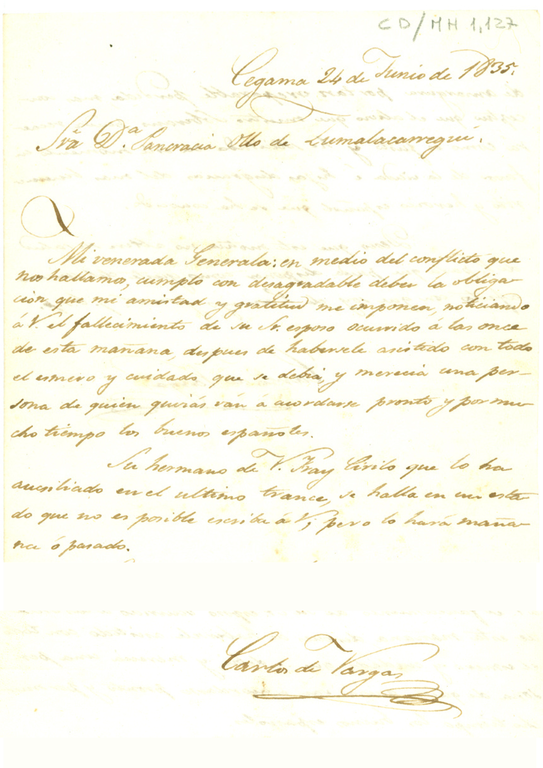 CD/MH 1,127
Cegama 24 de Junio de 1835.
Sra. Dª Pancracia Ollo de Zumalacarregui.
Mi venerada Generala: en medio del conflicto que
nos hallamos, cumplo con desagradable deber la obliga-
cion que mi amistad y gratitud me imponen, noticiando
á V. el fallecimiento de su Sr. esposo ocurrido á las once
de esta mañana, despues de habersele asistido con todo
el esmero y cuidado que se debia, y merecia una per-
sona de quien quizás ván á acordarse pronto y por mu-
cho tiempo los buenos españoles.
Su hermano de V. Fray Cirilo que lo ha
auxiliado en el ultimo trance, se halla en un esta-
do que no es posible escriba á V; pero lo hará maña-
na ó pasado.
Carlos de Vargas